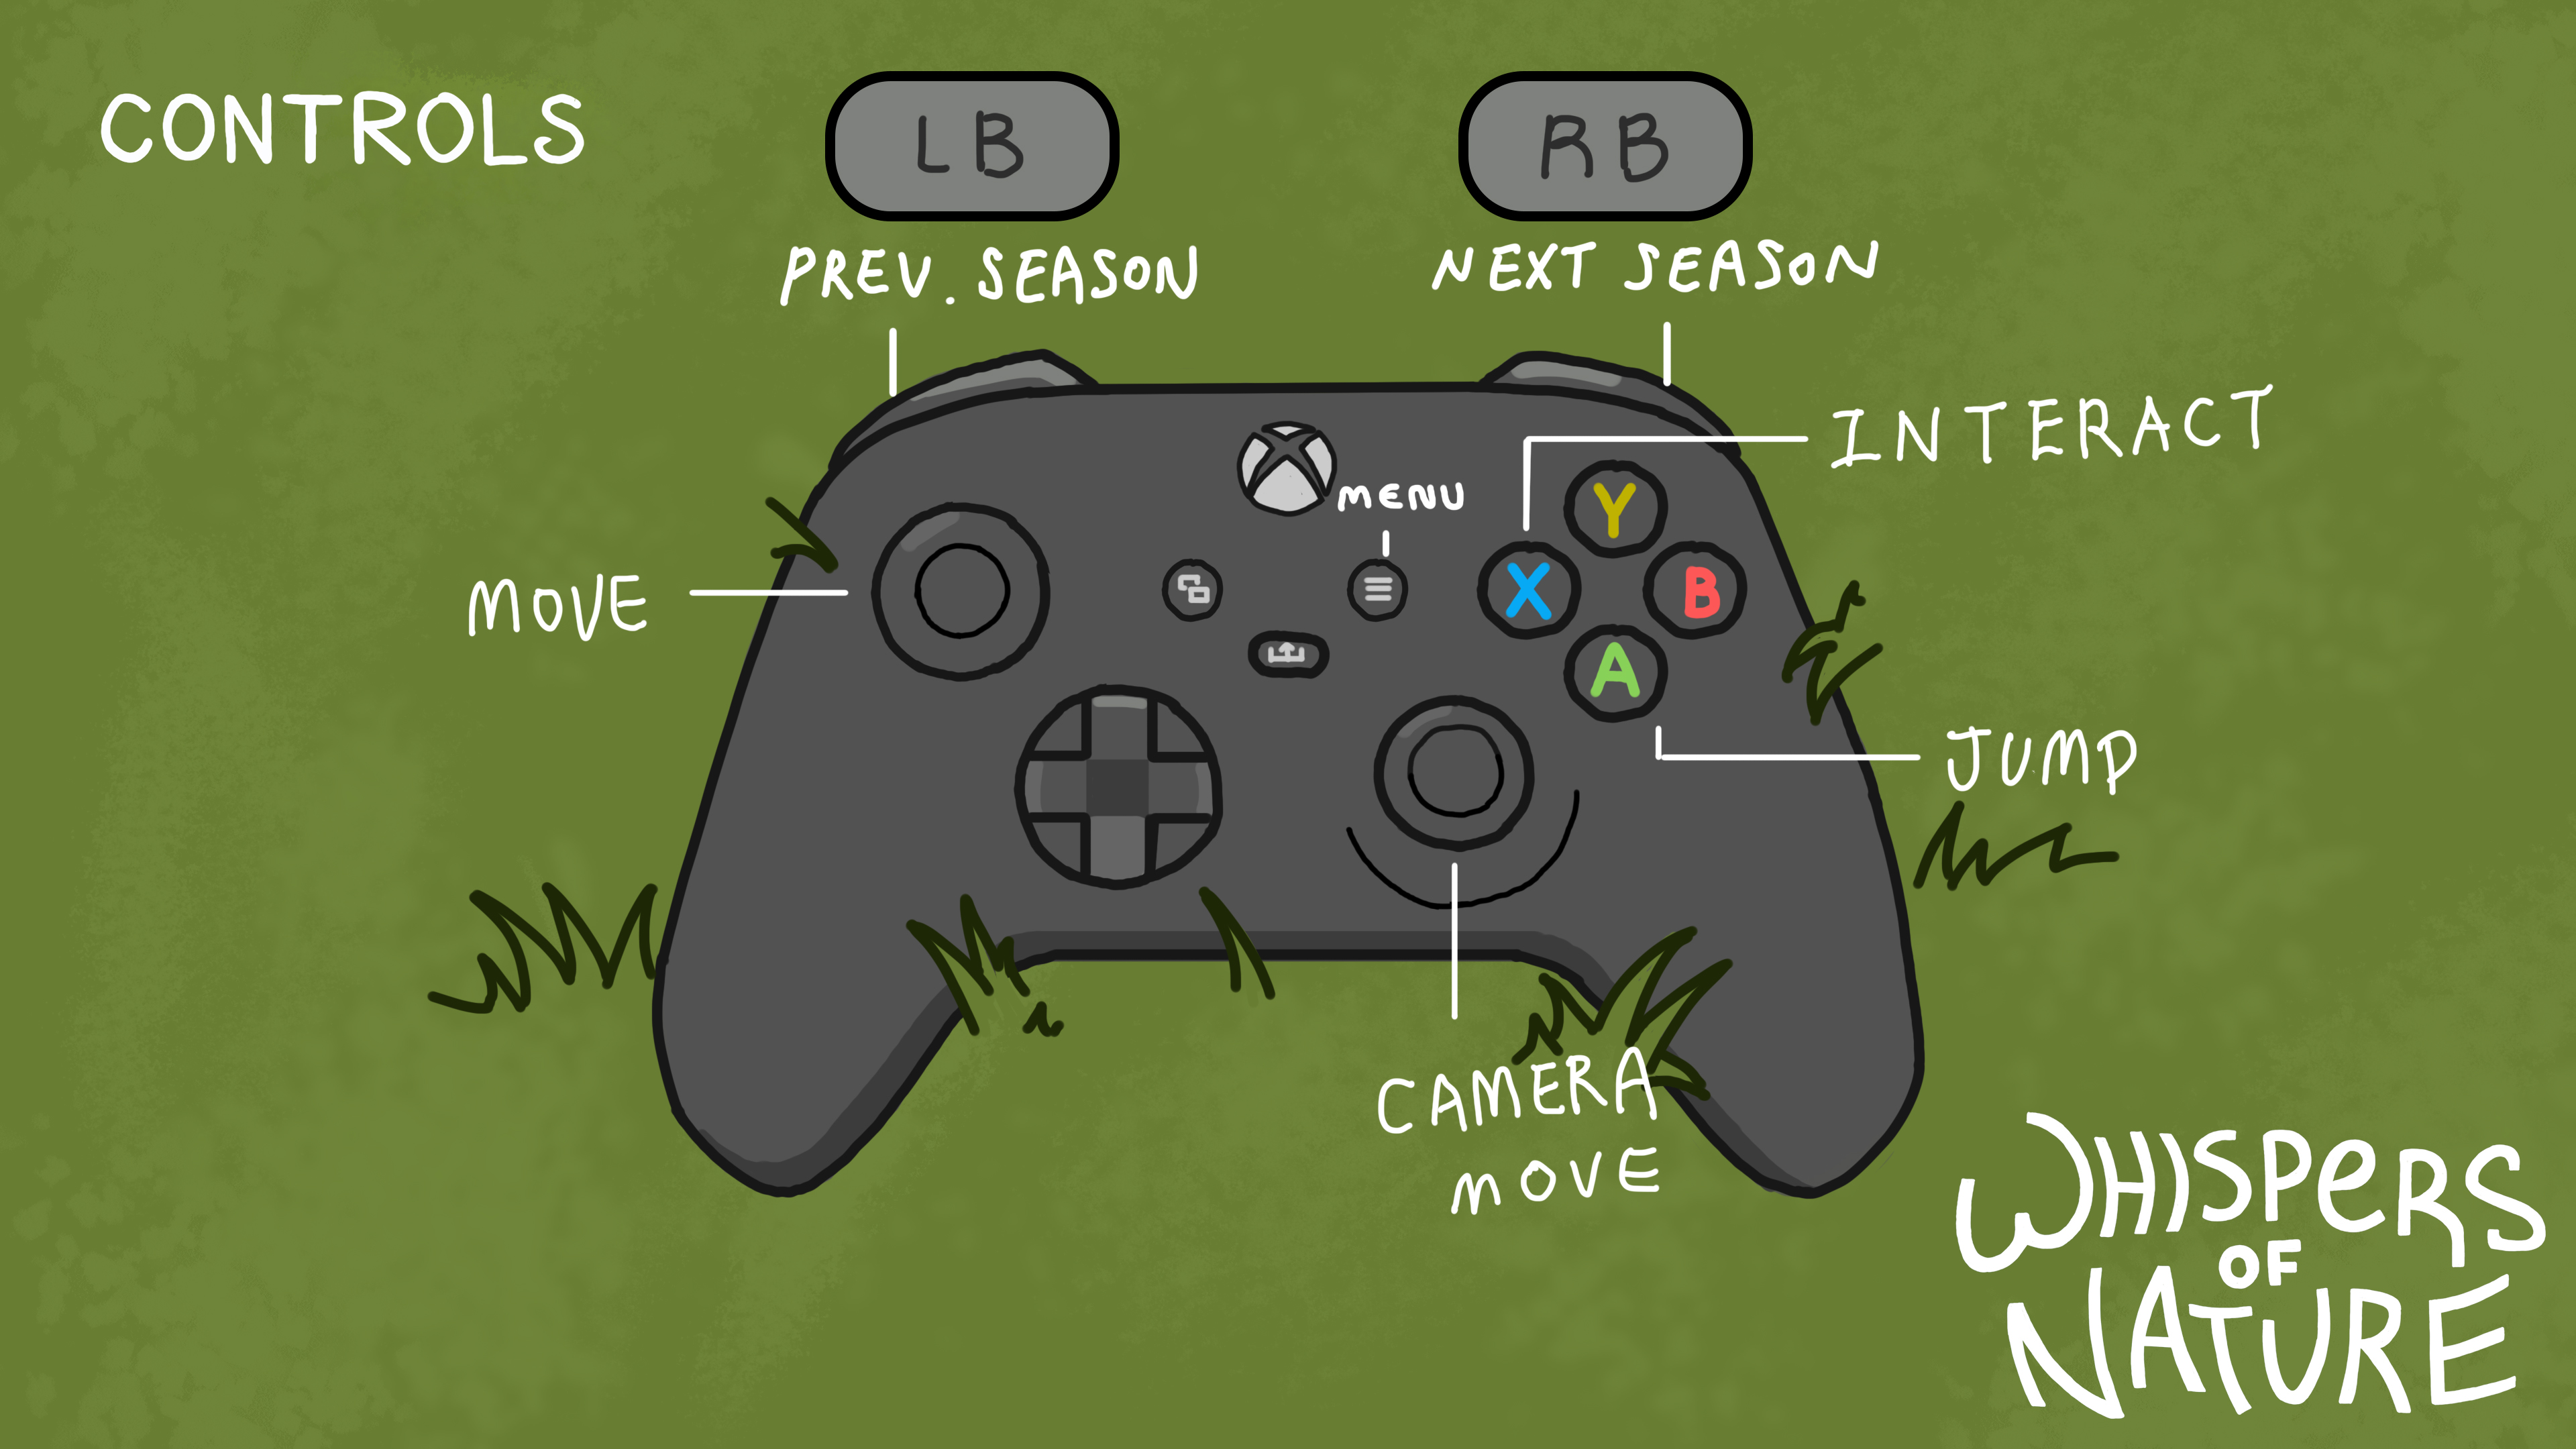 CONTROLS
LB
RB
PREV. SEASON
NEXT SEASON
INTERACT
MENU
Y
MOVE
X
B
A
JUMP
CAMERA
MOVE
WHISPERS
OF
NATURE